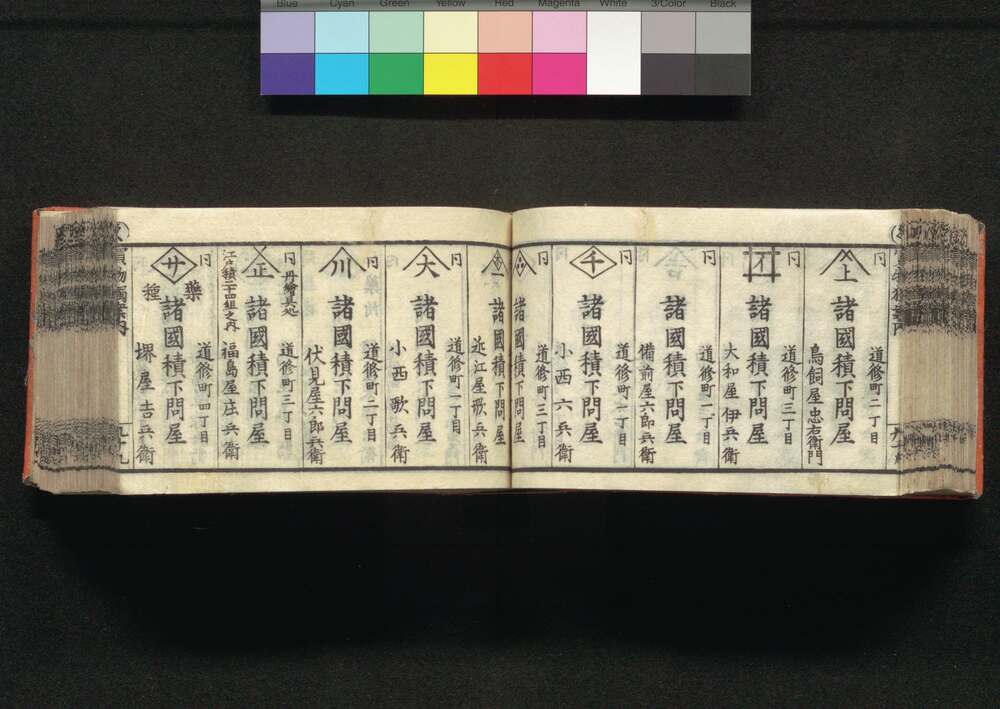 Blue Cyan Green Yellow Red Magenta White 3/Color Black
同 道修町二丁目
上 諸國積下問屋
鳥飼屋忠右衛門
同 道修町三丁目
諸國積下問屋
大和屋伊兵衛
同 道修町一丁目
諸國積下問屋
備前屋六郎兵衛
同 道修町一丁目
千 諸國積下問屋
小西六兵衛
同 道修町三丁目
諸國積下問屋
一 諸國積下問屋
近江屋歌兵衛
同 道修町一丁目
大 諸國積下問屋
小西歌兵衛
同 道修町二丁目
川 諸國積下問屋
伏見屋六郎兵衛
同 丹繪具処 道修町三丁目
正 諸國積下問屋
江戸積二十四組之内 福島屋庄兵衛
同 道修町四丁目
藥種
サ 諸國積下問屋
堺屋吉兵衛